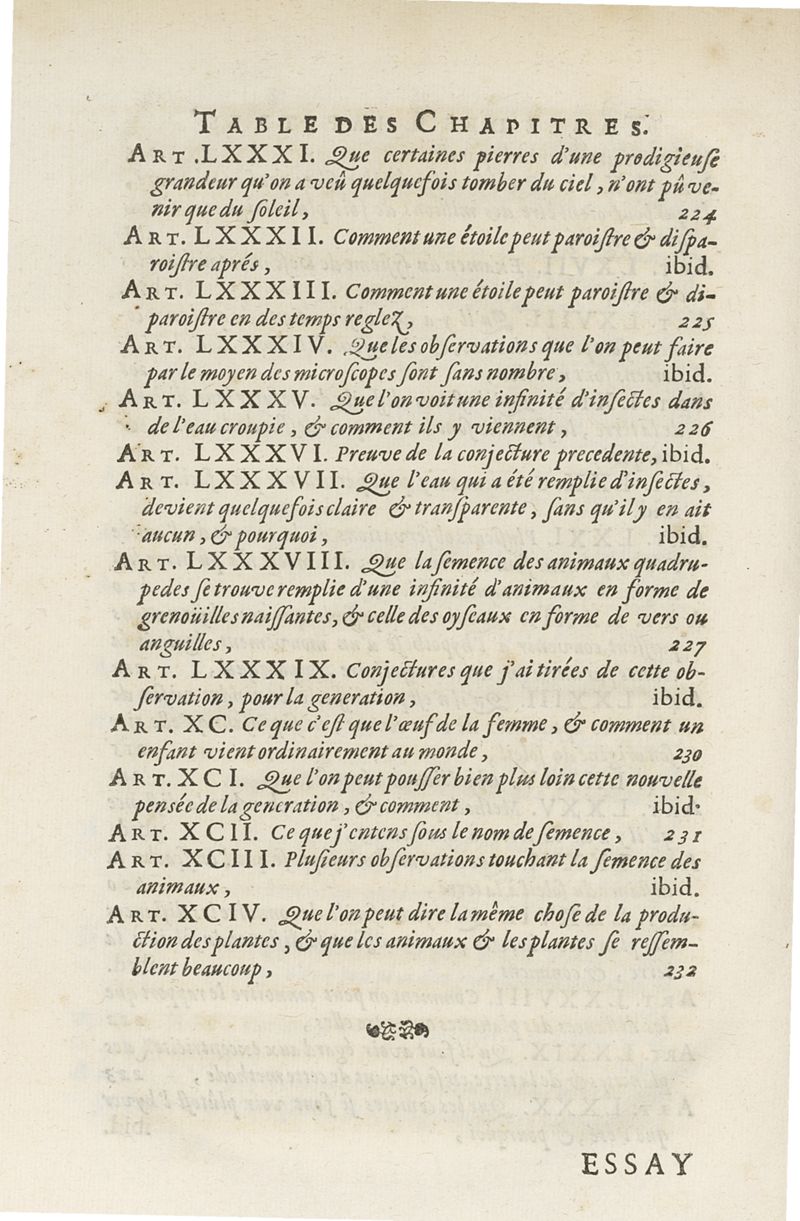 TABLE DES CHAPITRES.
ART. LXXXI. Que certaines pierres d'une prodigieuſe
grandeur qu'on a veû quelquefois tomber du ciel, n'ont pû ve-
nir que du ſoleil, 224
ART. LXXXII. Comment une étoile peut paroiſtre & diſpa-
roiſtre aprés, ibid.
ART. LXXXIII. Comment une étoile peut paroiſtre & di-
paroiſtre en des temps reglez, 225
ART. LXXXIV. Que les obſervations que l'on peut faire
par le moyen des microſcopes ſont ſans nombre, ibid.
ART. LXXXV. Que l'on voit une infinité d'inſectes dans
de l'eau croupie, & comment ils y viennent, 226
ART. LXXXVI. Preuve de la conjecture precedente, ibid.
ART. LXXXVII. Que l'eau qui a été remplie d'inſectes,
devient quelquefois claire & tranſparente, ſans qu'il y en ait
aucun, & pourquoi, ibid.
ART. LXXXVIII. Que la ſemence des animaux quadru-
pedes ſe trouve remplie d'une infinité d'animaux en forme de
grenoüilles naiſſantes, & celle des oyſeaux en forme de vers ou
anguilles, 227
ART. LXXXIX. Conjectures que j'ai tirées de cette ob-
ſervation, pour la generation, ibid.
ART. XC. Ce que c'eſt que l'œuf de la femme, & comment un
enfant vient ordinairement au monde, 230
ART. XCI. Que l'on peut pouſſer bien plus loin cette nouvelle
penſée de la generation, & comment, ibid.
ART. XCII. Ce que j'entens ſous le nom de ſemence, 231
ART. XCIII. Pluſieurs obſervations touchant la ſemence des
animaux, ibid.
ART. XCIV. Que l'on peut dire la même choſe de la produ-
ction des plantes, & que les animaux & les plantes ſe reſſem-
blent beaucoup, 232
ESSAY